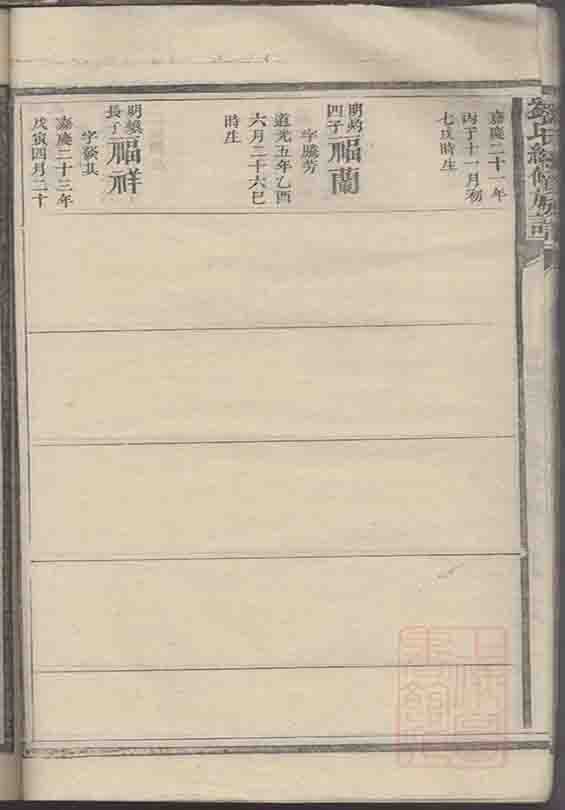 嘉慶二十一年
丙子十一月初
七戌時生
明灼四子
福蘭
字騰芳
道光五年乙酉
六月二十六巳
時生
長子
福祥
字發其
嘉慶二十三年
戊寅四月二十